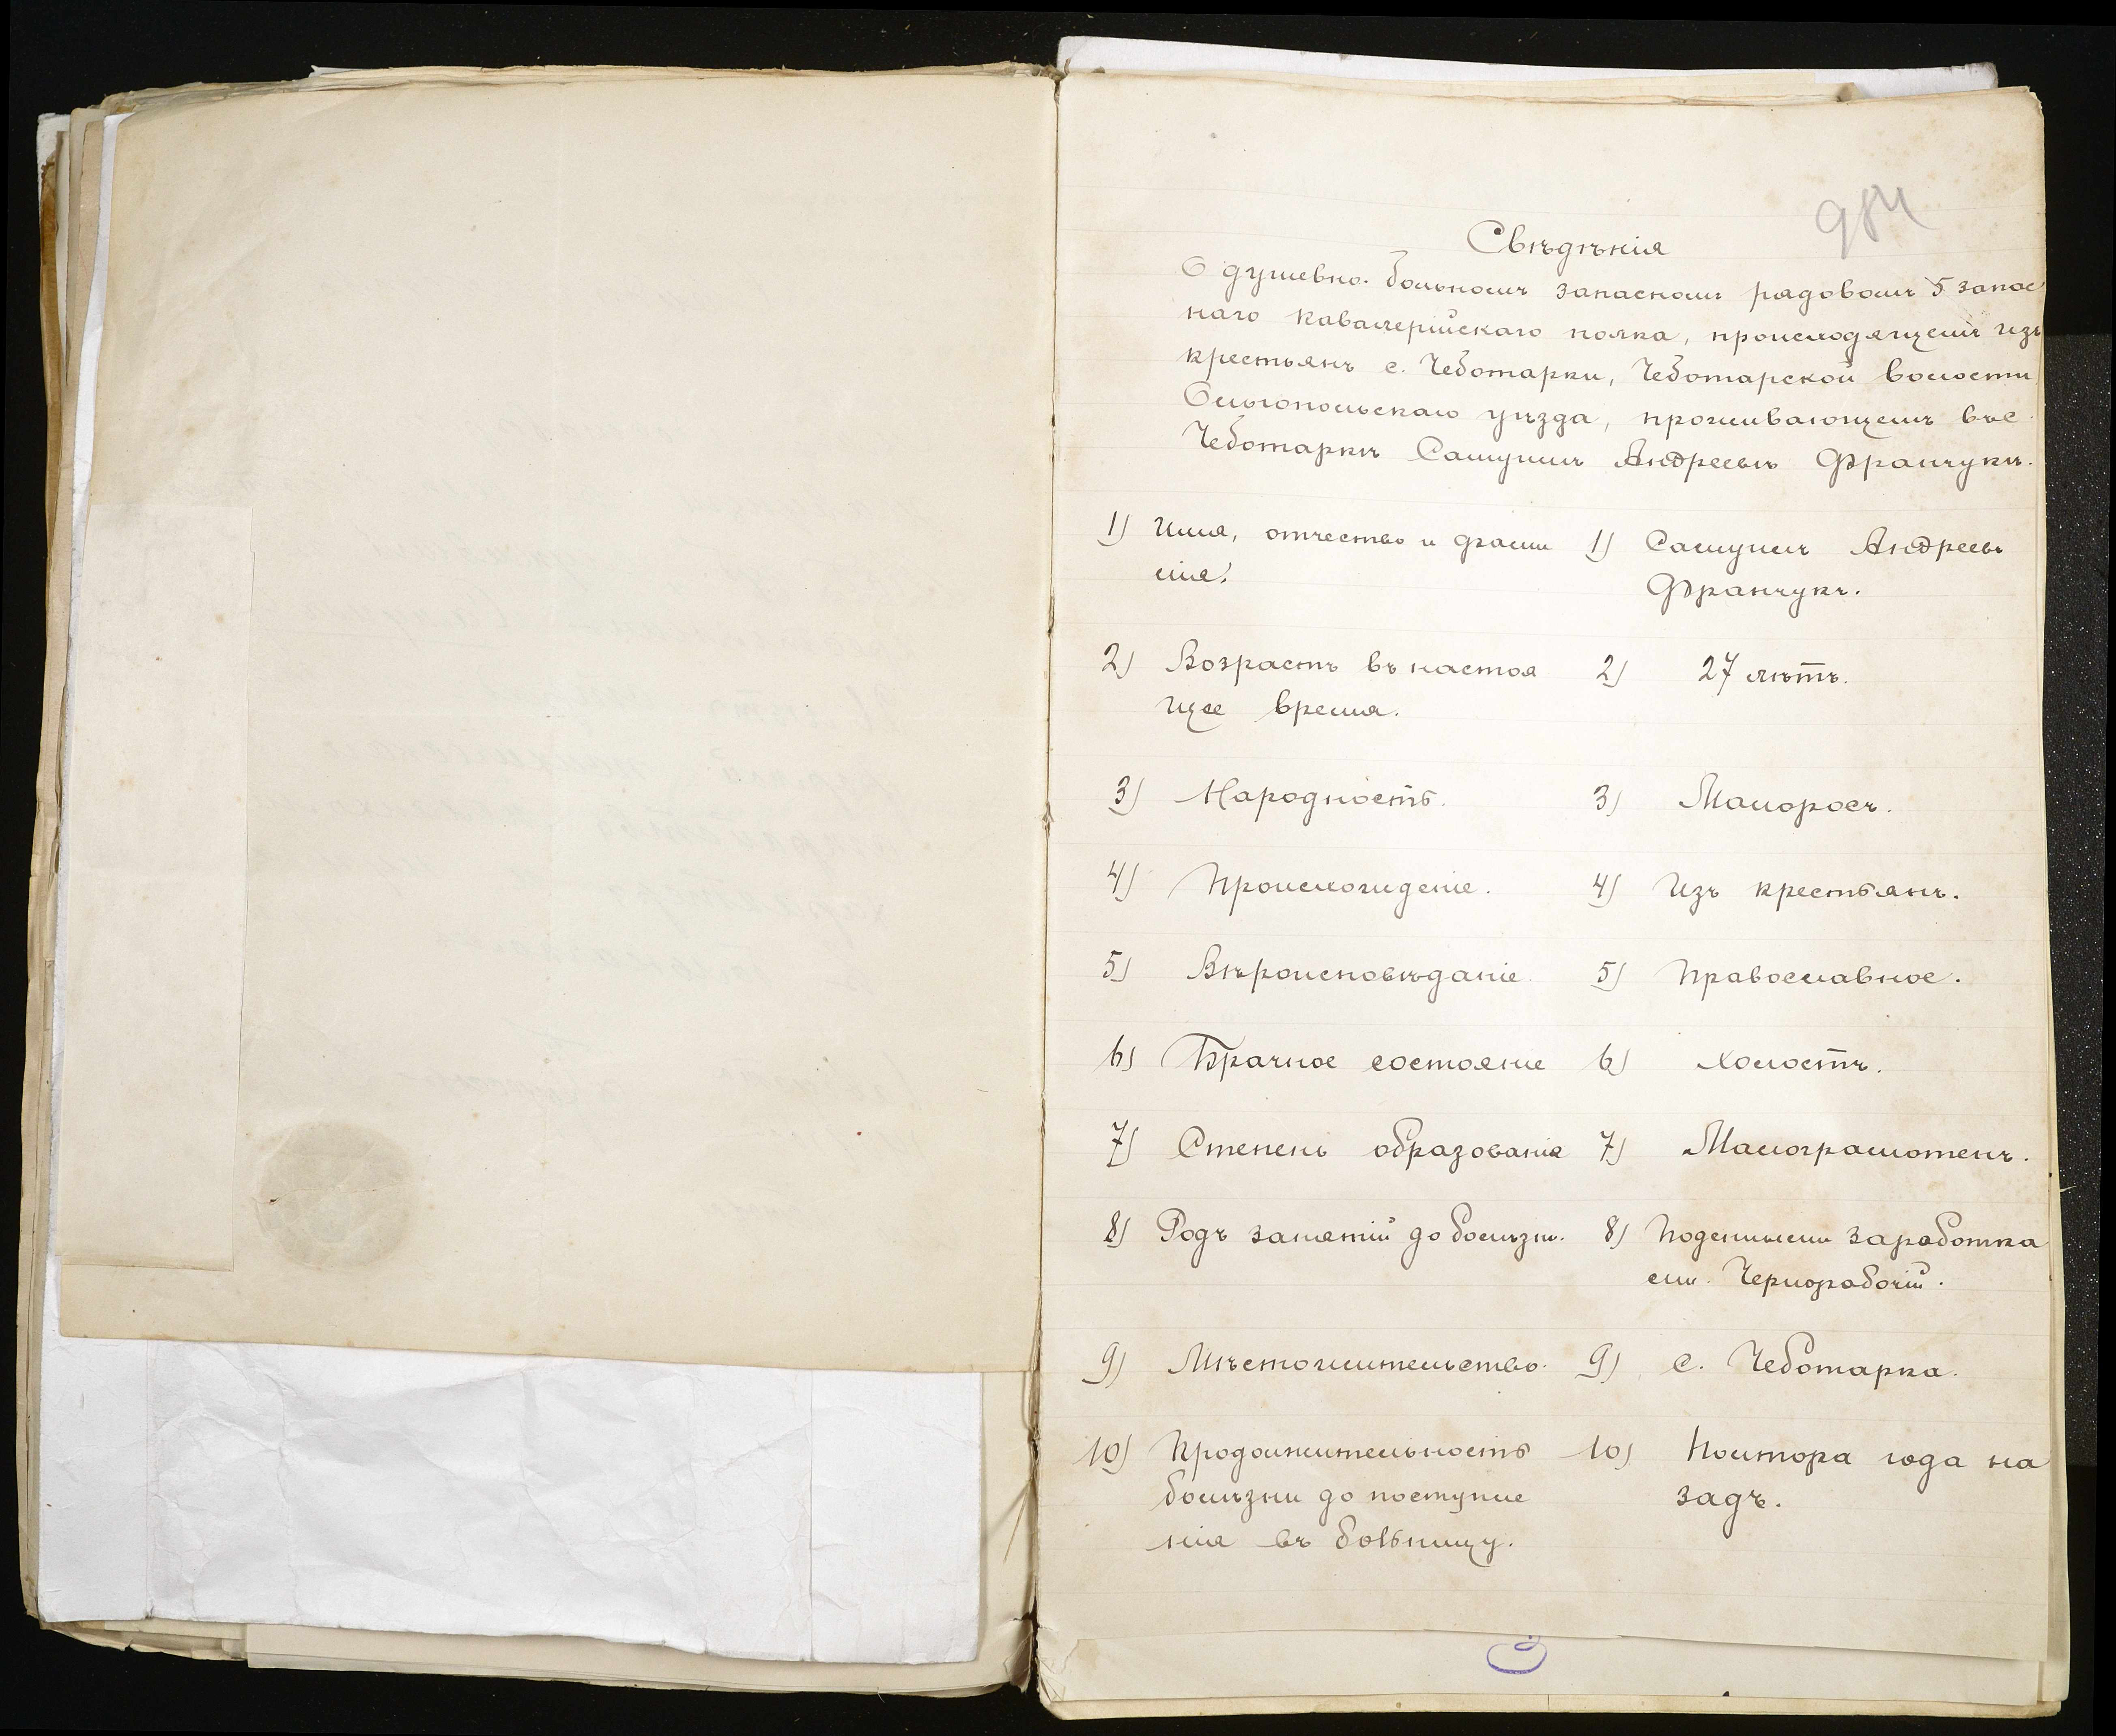 984
Свѣдѣнія
О душевно-больномъ запасномъ рядовомъ 5 запас
наго кавалерійскаго полка, происходящемъ изъ
крестьянъ с. Чеботарки, Чеботарской волости
Ольгопольскаго уѣзда, проживающемъ въ с.
Чеботаркѣ Самуилѣ Андреевѣ Франчукѣ.
1) Имя, отчество и фами
лія.
1) Самуилъ Андреевъ
Франчукъ.
2) Возрастъ въ настоя
щее время.
2) 27 лѣтъ.
3) Народность.
3) Малоросъ.
4) Происхожденіе.
4) Изъ крестьянъ.
5) Вѣроисповѣданіе.
5) Православное.
6) Брачное состояніе
6) Холостъ.
7) Степень образованія
7) Малограмотенъ.
8) Родъ занятій до болѣзни.
8) Поденными заработка
ми. Чернорабочій.
9) Мѣстожительство.
9) с. Чеботарка.
10) Продолжительность
болѣзни до поступле
нія въ больницу.
10) Полтора года на
задъ.